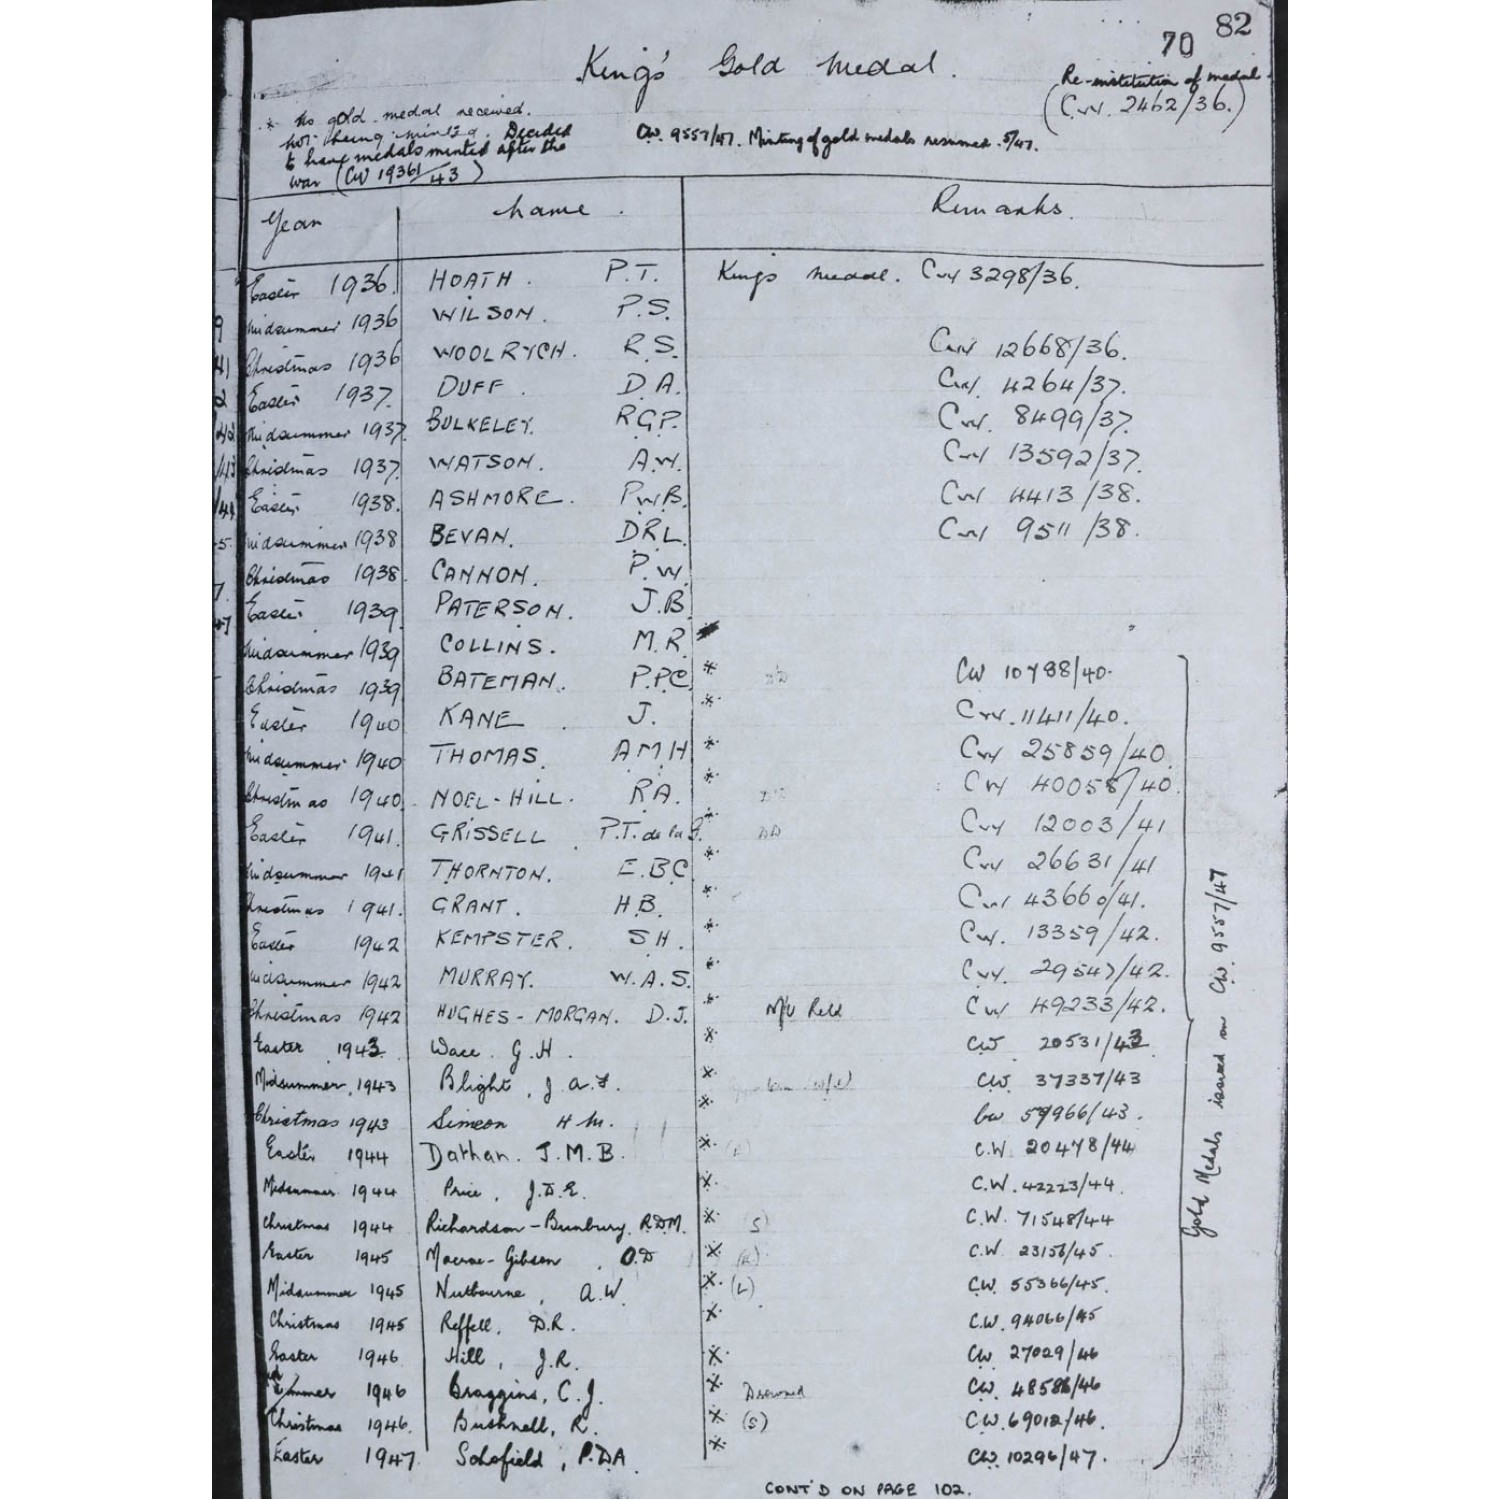 70 82
King's Gold Medal.
Re-institution of medal.
(C.W. 2462/36.)
* No gold medal received.
not being minted. Decided
to have medals minted after the
war (CW 19361/43)
CW. 9557/47. Minting of gold medals resumed. 5/47.
Year Name. Remarks.
Easter 1936. HOATH. P.T. King's Medal. CW 3298/36.
Midsummer 1936 WILSON. P.S.
Christmas 1936 WOOLRYCH. R.S. CW 12668/36.
Easter 1937. DUFF. D.A. CW. 4264/37.
Midsummer 1937. BULKELEY. R.G.P. CW. 8499/37.
Christmas 1937. WATSON. A.W. CW 13592/37.
Easter 1938. ASHMORE. P.W.B. CW 4413/38.
Midsummer 1938 BEVAN. D.R.L. CW 9511/38.
Christmas 1938. CANNON. P.W.
Easter 1939. PATERSON. J.B.
Midsummer 1939 COLLINS. M.R.
Christmas 1939 BATEMAN. P.P.C. * CW 10798/40.
Easter 1940 KANE. J. * CW. 11411/40.
Midsummer 1940 THOMAS. A.M.H * CW 25859/40.
Christmas 1940. NOEL-HILL. R.A. * CW 40058/40.
Easter 1941. GRISSELL. P.T. de la G. * CW 12003/41
Midsummer 1941 THORNTON. E.B.C. * CW 26631/41
Christmas 1941. GRANT. H.B. * CW 43660/41.
Easter 1942 KEMPSTER. S.H. * CW. 13359/42.
Midsummer 1942 MURRAY. W.A.S. * CW. 29547/42.
Christmas 1942 HUGHES-MORGAN. D.J. * CW 49233/42.
Easter 1943 Wace. G.H. * CW 20531/43
Midsummer, 1943 Blight, J.A.F. * CW. 37337/43
Christmas 1943 Simeon H M. * CW 59966/43.
Easter 1944 Dathan. J.M.B. * C.W. 20478/44
Midsummer 1944 Price, J.D.E. * C.W. 42223/44.
Christmas 1944 Richardson-Bunbury, R.D.M. * (S) C.W. 71548/44
Easter 1945 Macrae-Gibson, O.D * C.W. 23156/45.
Midsummer 1945 Nutbourne, A.W. * (L) CW. 55366/45.
Christmas 1945 Reffell, D.R. * C.W. 94066/45
Easter 1946 Hill, J.R. * CW 27029/46
Summer 1946 Braggins, C.J. * Drowned CW. 48586/46
Christmas 1946. Bushnell, R. * (S) CW. 69012/46.
Easter 1947 Schofield, P.D.A * CW. 10296/47.
Gold Medals issued on CW. 9557/47
CONT'D ON PAGE 102.